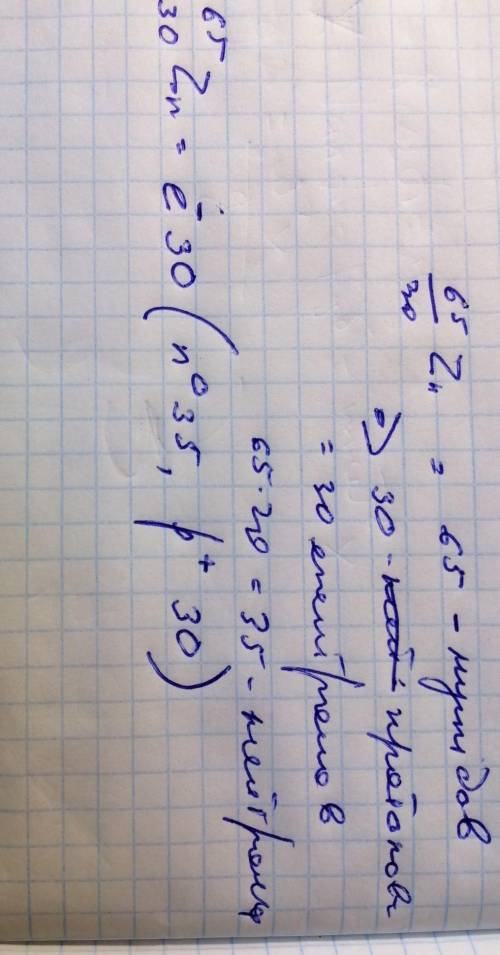 65/30 Zn = 65 - нуклидов
=> 30 - протонов
= 30 електронов
65-30 = 35 - нейтроны
65 30 Zn = e⁻ 30 (n⁰ 35, p⁺ 30)